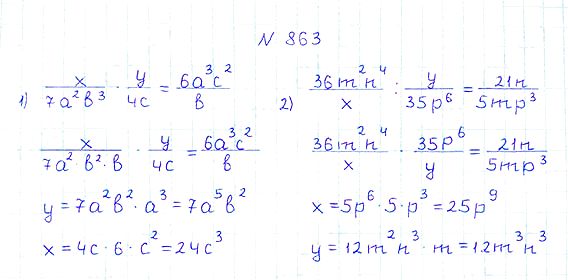 N 863
1) x / 7a²b³ · y / 4c = 6a³c² / b
x / 7a²·b²·b · y / 4c = 6a³c² / b
y = 7a²b²·a³ = 7a⁵b²
x = 4c·6·c² = 24c³
2) 36m²n⁴ / x : y / 35p⁶ = 21n / 5mp³
36m²n⁴ / x · 35p⁶ / y = 21n / 5mp³
x = 5p⁶·5·p³ = 25p⁹
y = 12m²n³·m = 12m³n³